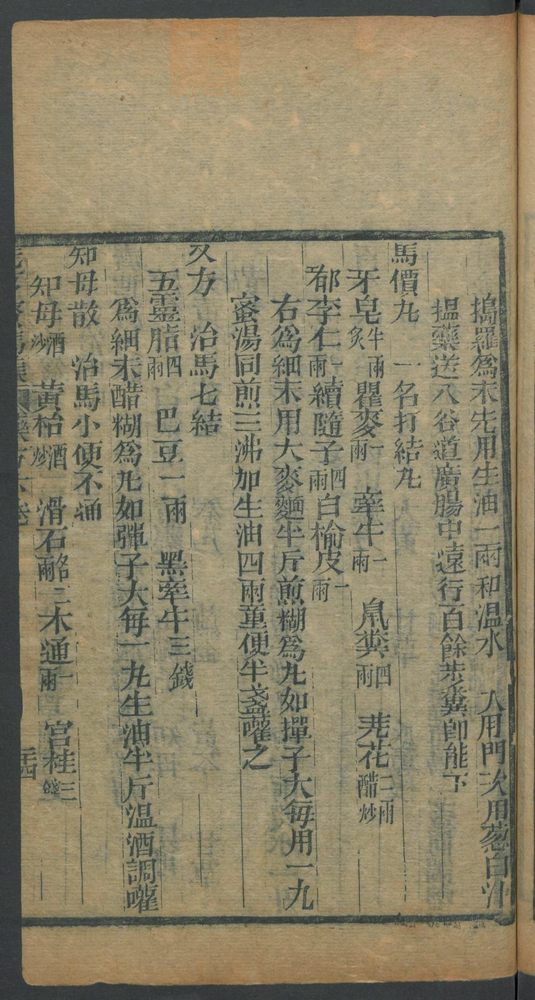 搗羅爲末先用生油一兩和温水 入用門次用葱白汁
揾藥送入谷道廣腸中遠行百餘步糞即能下
馬價丸 一名打結丸
牙皂半兩炙 瞿麥一兩 牽牛一兩 鼠糞四兩 芫花三兩醋炒
郁李仁一兩 續隨子四兩 白榆皮一兩
右爲細末用大麥麵半斤煎糊爲丸如彈子大每用一丸
蜜湯同煎三沸加生油四兩童便半盞嚾之
又方 治馬七結
五靈脂四兩 巴豆一兩 黑牽牛三錢
爲細末醋糊爲丸如彈子大每一丸生油半斤温酒調嚾
知母散 治馬小便不通
知母酒炒 黄柏酒炒 滑石 木通一兩 官桂三錢